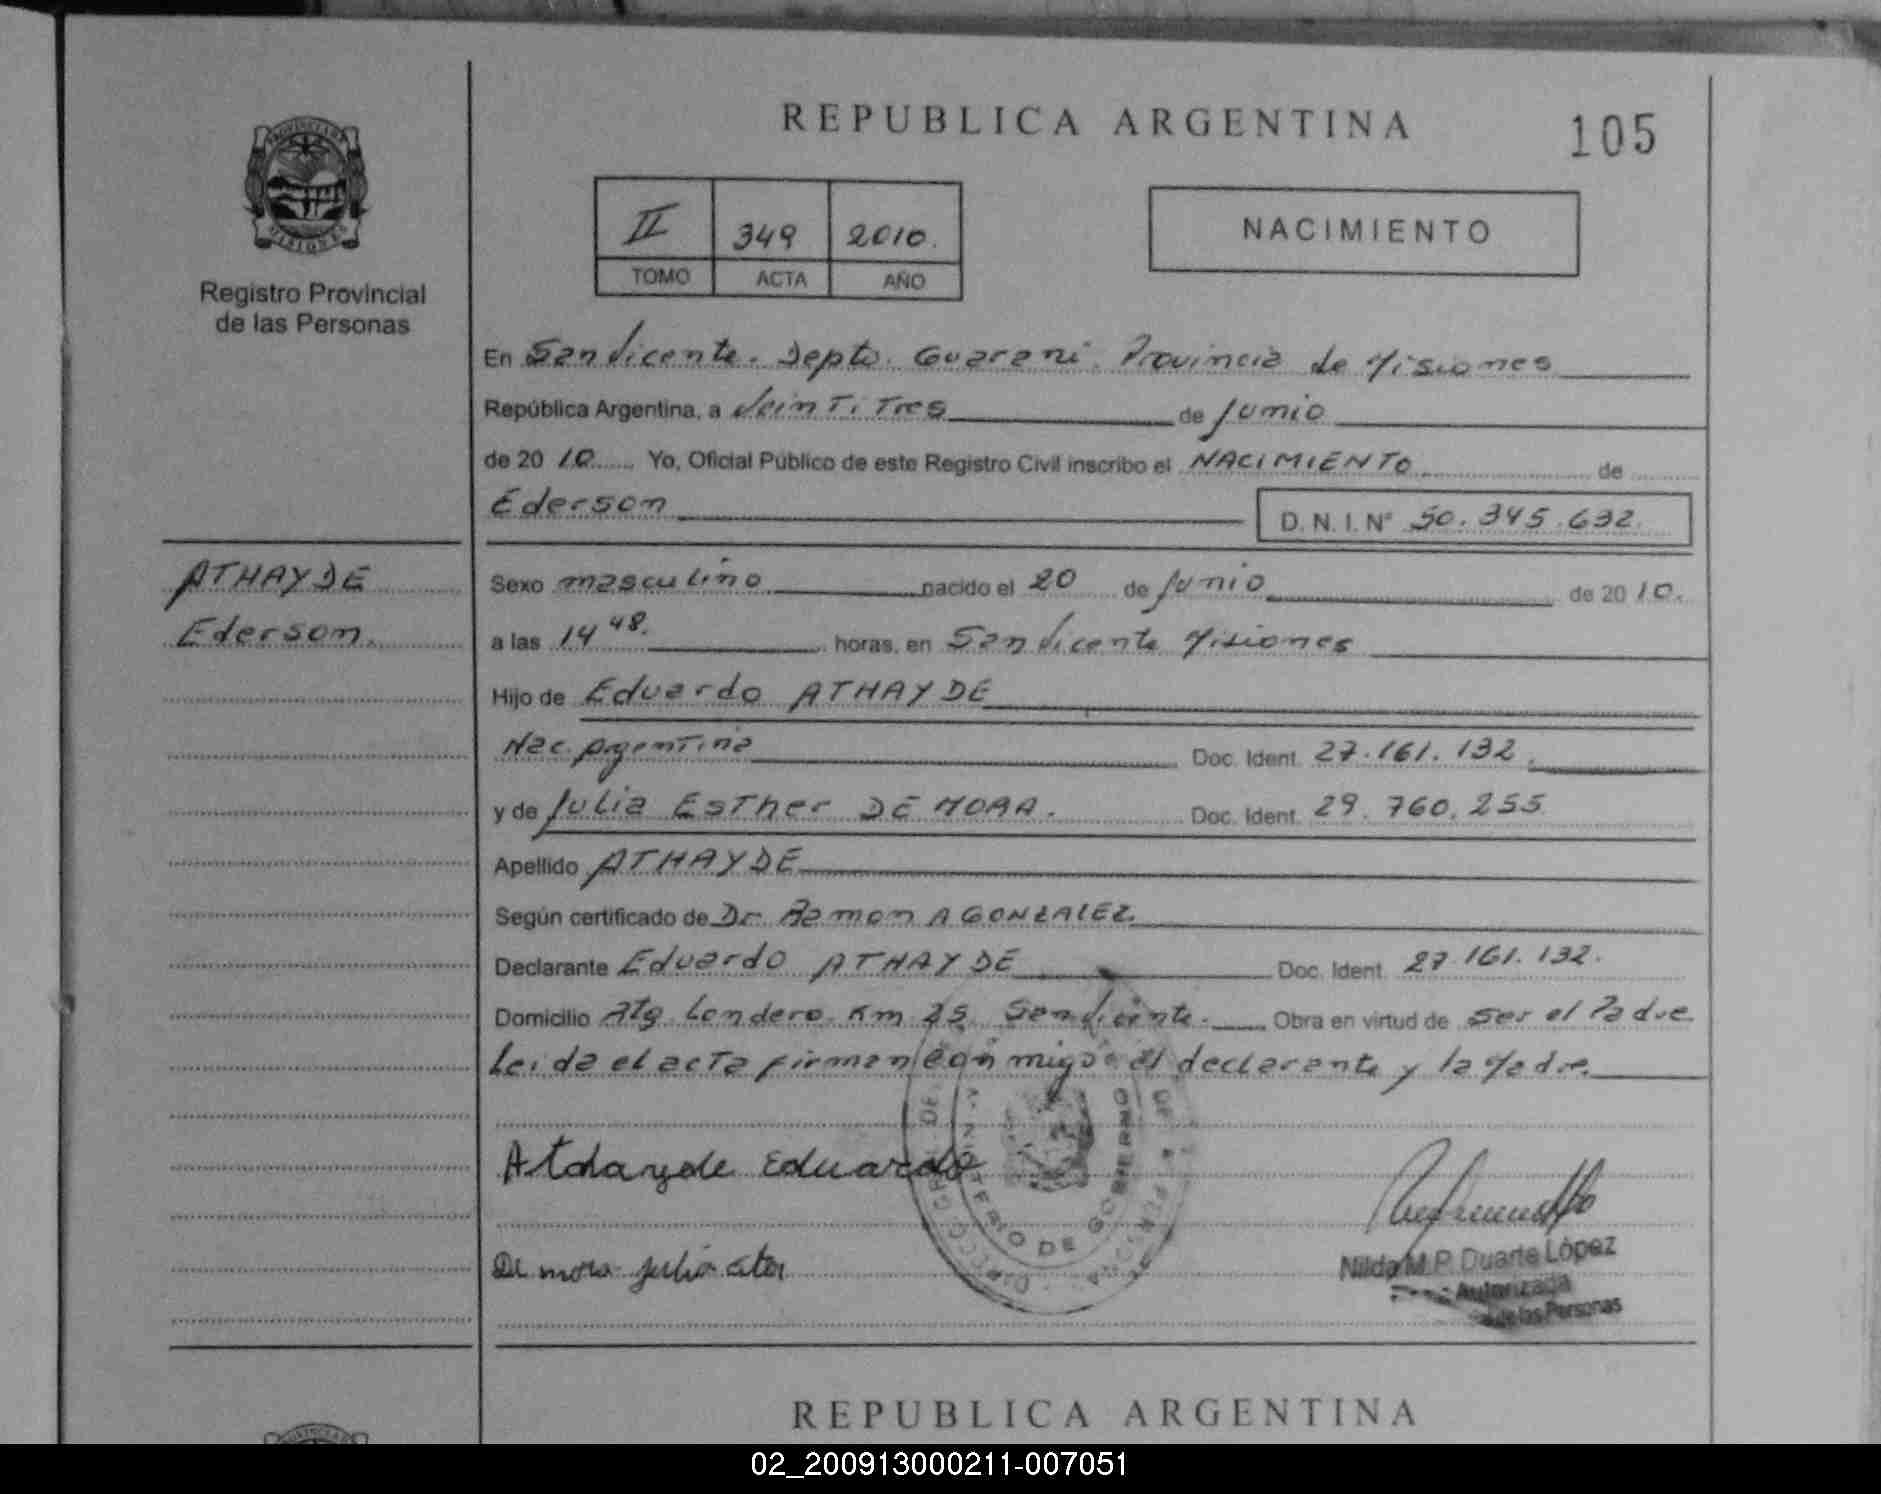 REPUBLICA ARGENTINA
105
PROVINCIA DE
MISIONES
Registro Provincial
de las Personas
II 349 2010.
TOMO ACTA AÑO
NACIMIENTO
En San Vicente. Depto. Guarani. Provincia de Misiones
República Argentina, a Vein Ti Tres de Junio
de 20 10 Yo, Oficial Público de este Registro Civil inscribo el NACIMIENTO de
Ederson
D. N. I. Nº 50.345.632.
ATHAYDE
Ederson.
Sexo masculino nacido el 20 de Junio de 2010.
a las 14 48. horas, en San Vicente Misiones
Hijo de Eduardo ATHAYDE
Nac. Argentina Doc. Ident. 27.161.132.
y de Julia EsTher DE MORA. Doc. Ident. 29.760.255
Apellido ATHAYDE
Según certificado de Dr. Ramon A GONZALEZ.
Declarante Eduardo ATHAYDE Doc. Ident. 27.161.132.
Domicilio Londero Km 25 San Vicente. Obra en virtud de ser el Padre
Leida el acTa firman con migo el declarante y la Madre.
Atdayde Eduardo
De mora julia
MINISTERIO DE GOBIERNO
Nilda M.P. Duarte López
Autorizada
de las Personas
REPUBLICA ARGENTINA
02_200913000211-007051